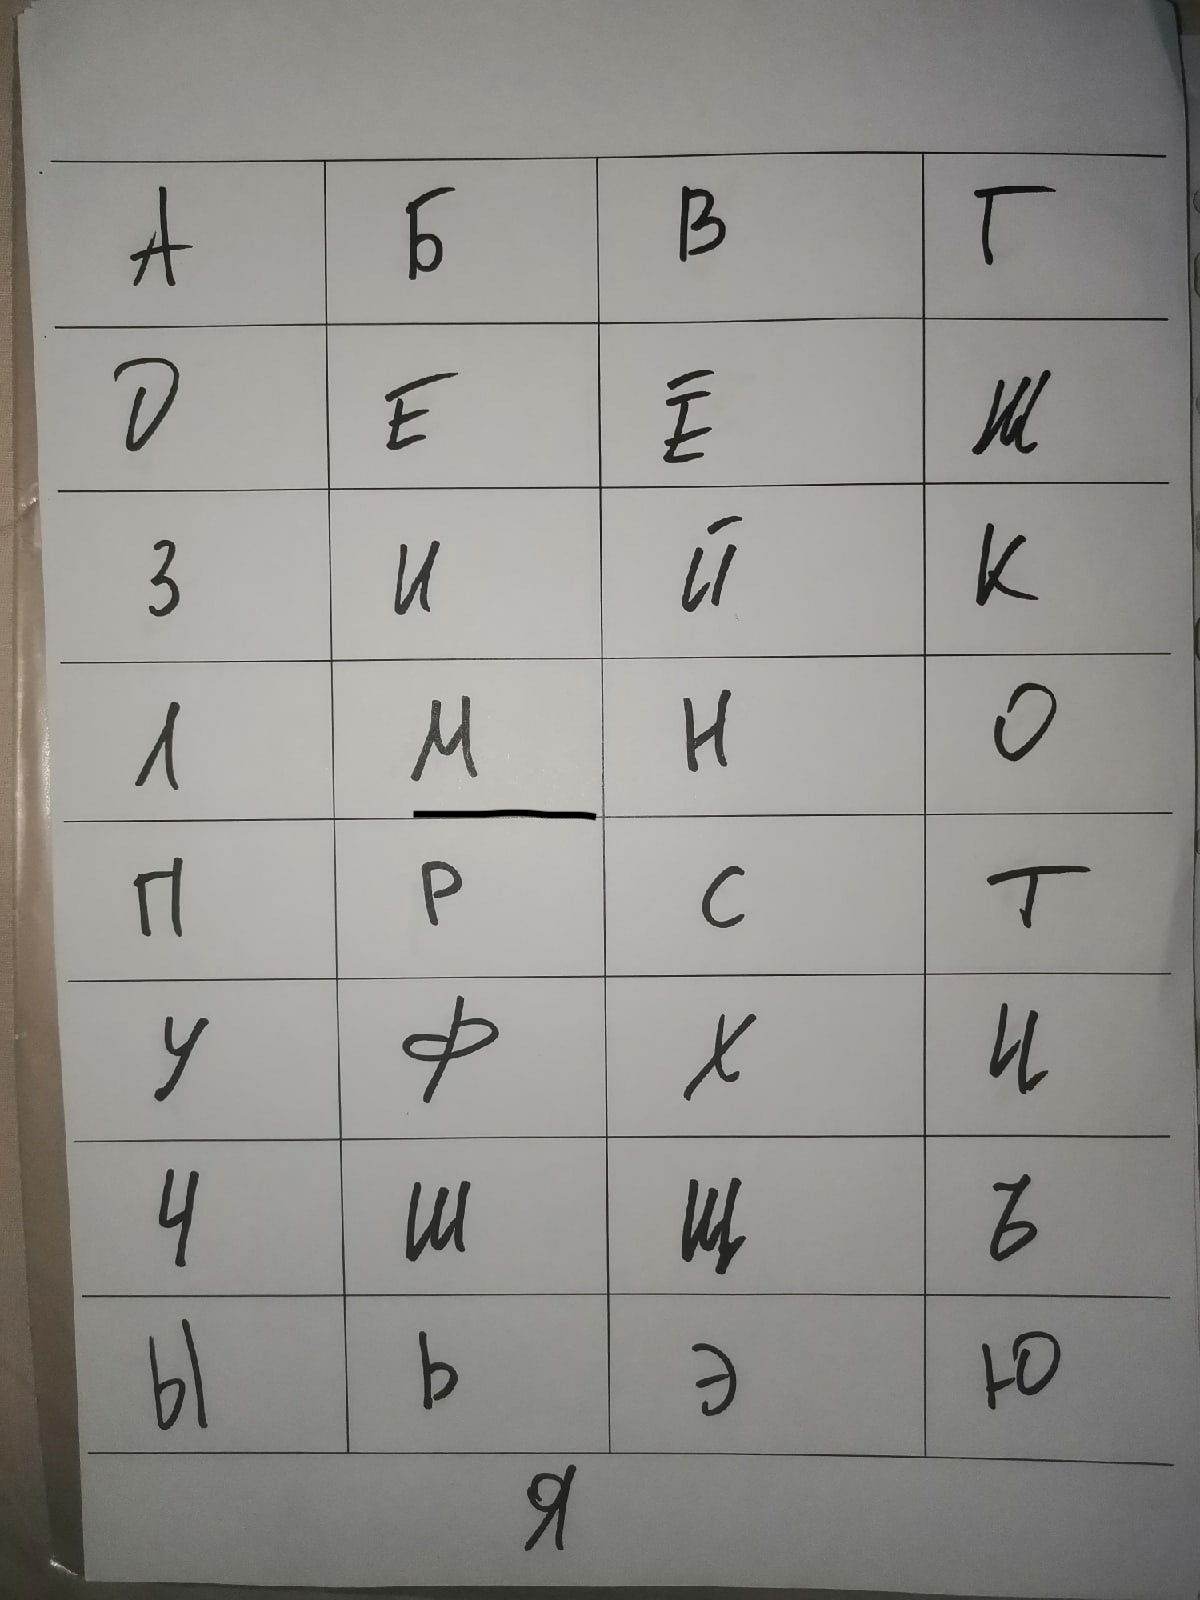 А Б В Г
Д Е Ё Ж
З И Й К
Л М Н О
П Р С Т
У Ф Х Ц
Ч Ш Щ Ъ
Ы Ь Э Ю
Я